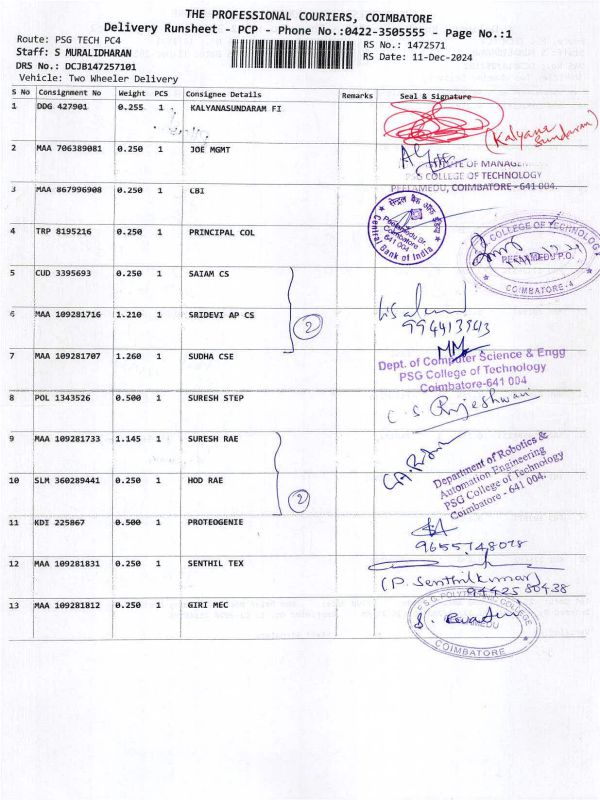 THE PROFESSIONAL COURIERS, COIMBATORE
Delivery Runsheet - PCP - Phone No.:0422-3505555 - Page No.:1
Route: PSG TECH PC4
RS No.: 1472571
Staff: S MURALIDHARAN
RS Date: 11-Dec-2024
DRS No.: DCJB147257101
Vehicle: Two Wheeler Delivery
S No Consignment No Weight PCS Consignee Details Remarks Seal & Signature
1 DDG 427901 0.255 1 KALYANASUNDARAM FI
(Kalyana Sundaram)
2 MAA 706389081 0.250 1 JOE MGMT
PSG COLLEGE OF TECHNOLOGY
PEELAMEDU, COIMBATORE - 641 004.
3 MAA 867996908 0.250 1 CBI
सेन्ट्रल बैंक ऑफ इंडिया
Peelamedu Br.
Coimbatore
641 004
Central Bank of India
4 TRP 8195216 0.250 1 PRINCIPAL COL
COLLEGE OF TECHNOLOGY
PEELAMEDU P.O.
COIMBATORE-4
5 CUD 3395693 0.250 1 SAIAM CS
6 MAA 109281716 1.210 1 SRIDEVI AP CS
2
9944139413
7 MAA 109281707 1.260 1 SUDHA CSE
Dept. of Computer Science & Engg
PSG College of Technology
Coimbatore-641 004
8 POL 1343526 0.500 1 SURESH STEP
C. S. Rajeshwari
9 MAA 109281733 1.145 1 SURESH RAE
10 SLM 360289441 0.250 1 HOD RAE
2
Department of Robotics &
Automation Engineering
PSG College of Technology
Coimbatore - 641 004.
11 KDI 225867 0.500 1 PROTEOGENIE
9655748078
12 MAA 109281831 0.250 1 SENTHIL TEX
(P. Senthilkumar)
9442580438
13 MAA 109281812 0.250 1 GIRI MEC
COIMBATORE